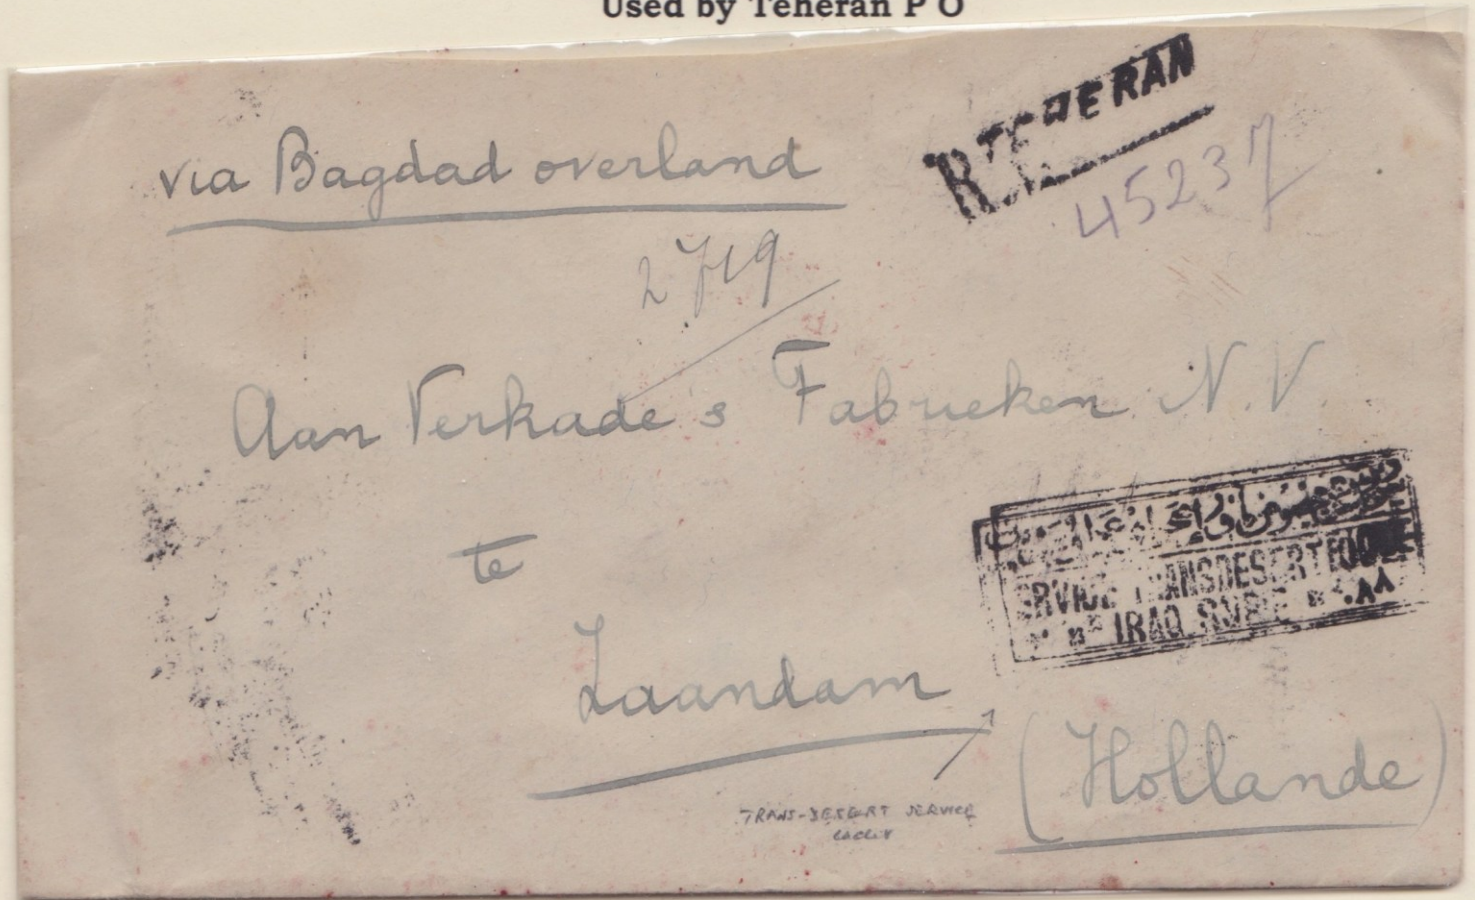 Used by Teheran P O
via Bagdad overland
R TEHERAN
45237
2719
Aan Verkade s Fabrieken N.V.
te
Zaandam
SERVICE TRANSDESERT
IRAQ SYRIE
(Hollande)
TRANS-DESERT SERVICE
cachet